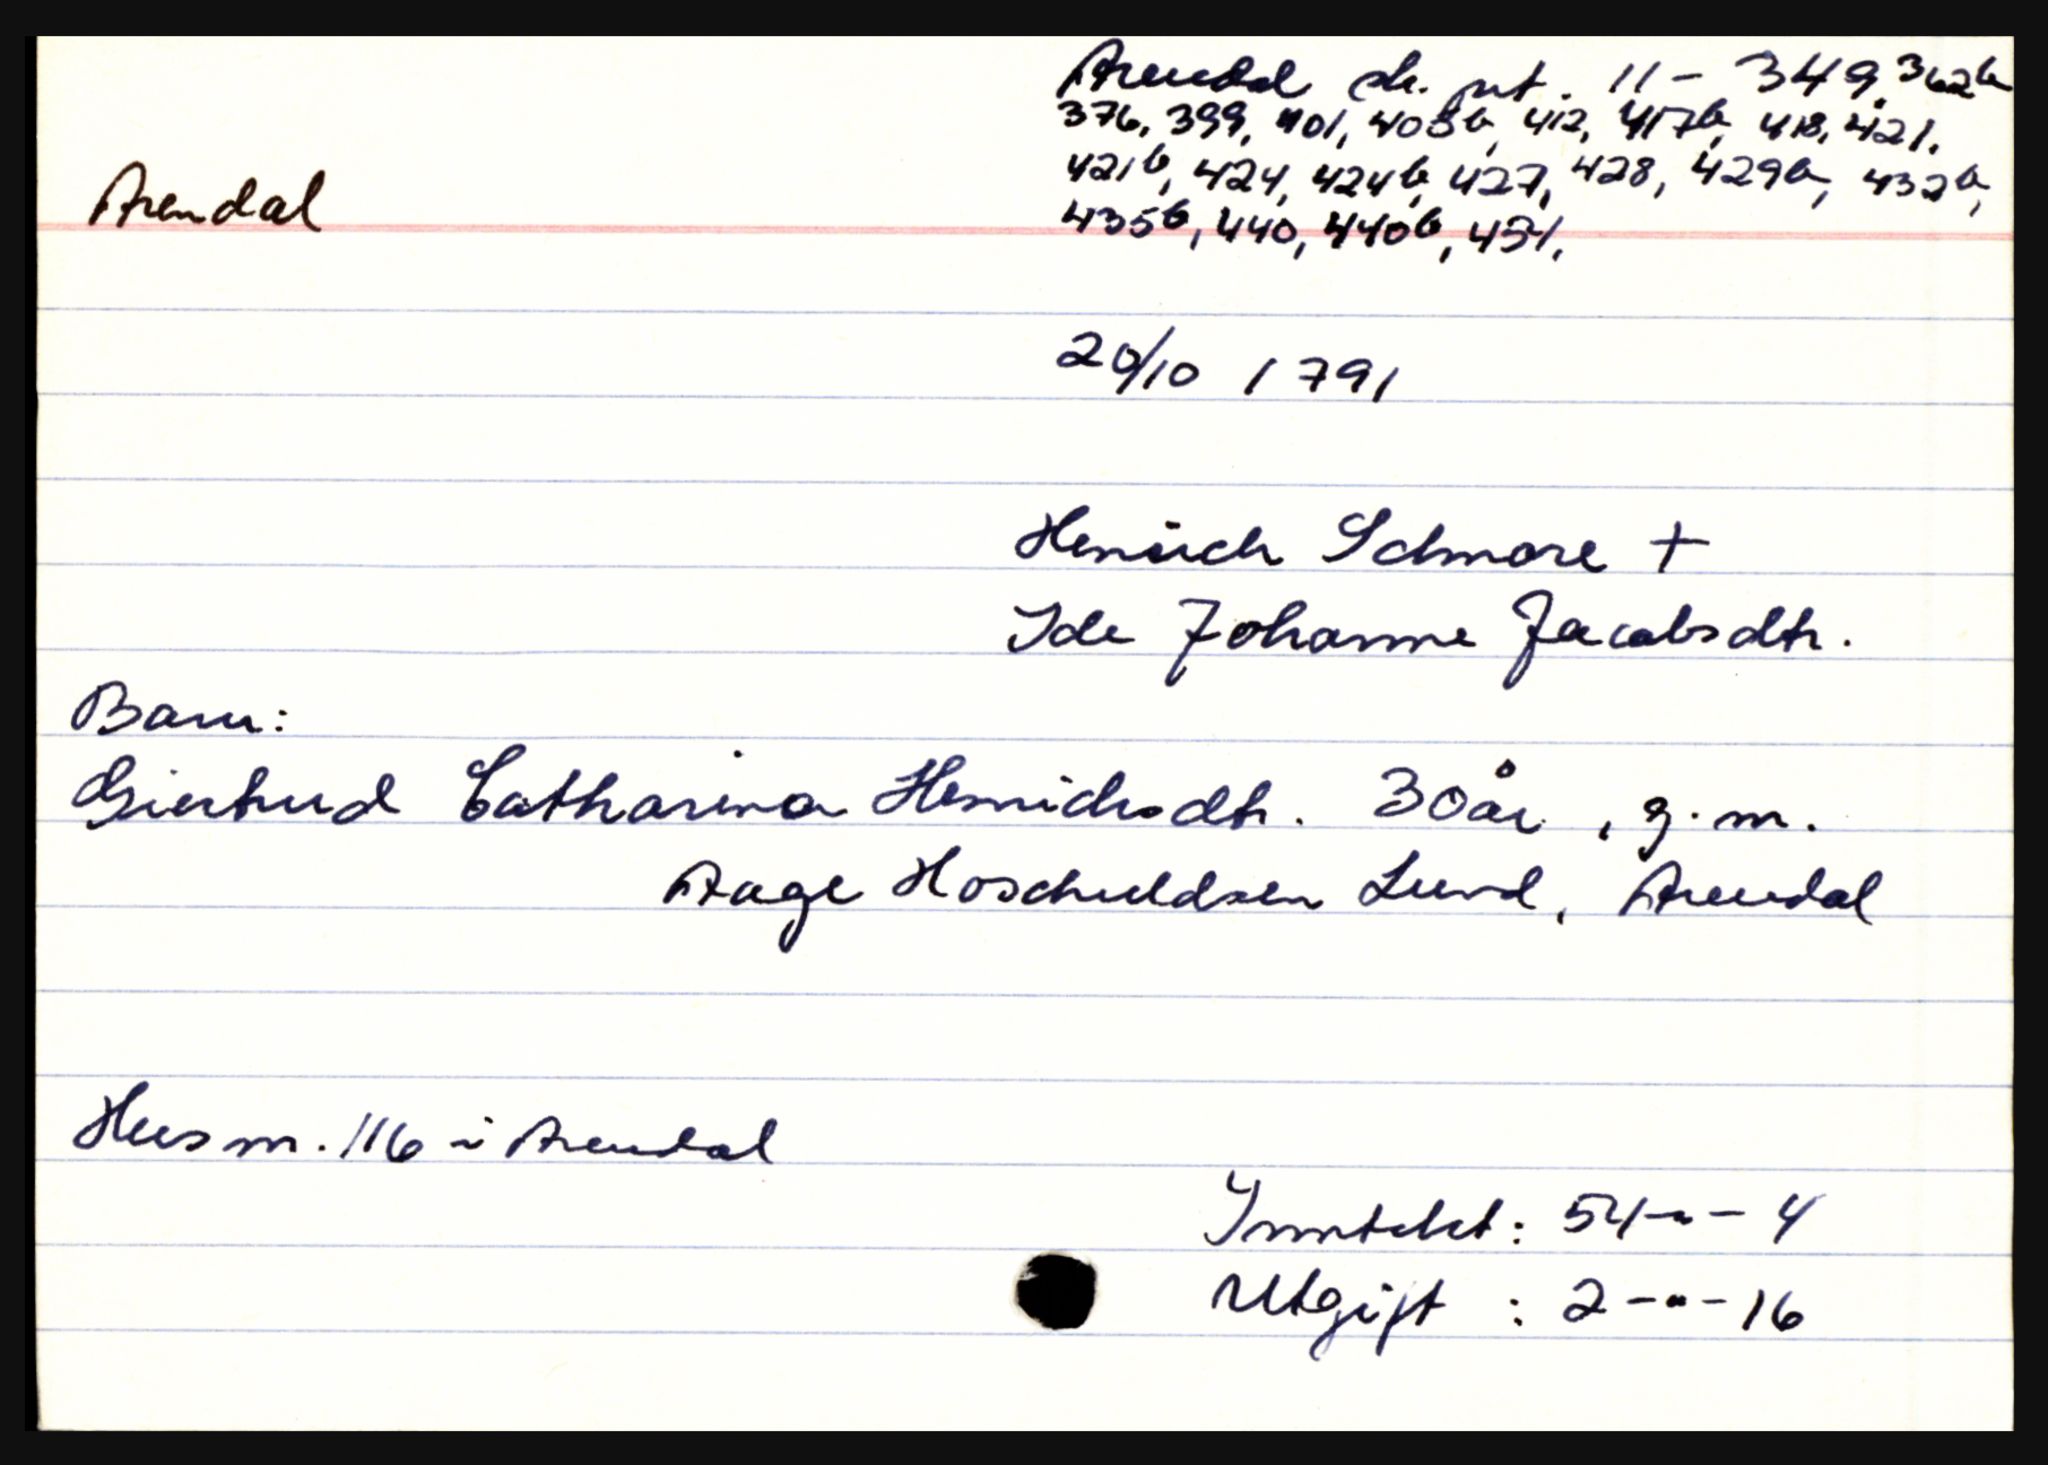 Arendal sk. prt. 11 - 349, 362b
376, 399, 401, 408b, 412, 417b, 418, 421,
421b, 424, 424b, 427, 428, 429b, 432b,
Arendal
435b, 440, 440b, 451,
20/10 1791
Henrich Schmare +
Ide Johanne Jacobsdtr.
Barn:
Giertrud Catharina Henrichsdtr. 30 år, g.m.
Aage Hoschuldsen Lund, Arendal
Hus nr. 116 i Arendal
Inntekt: 54 -"- 4
Utgift : 2 -"- 16